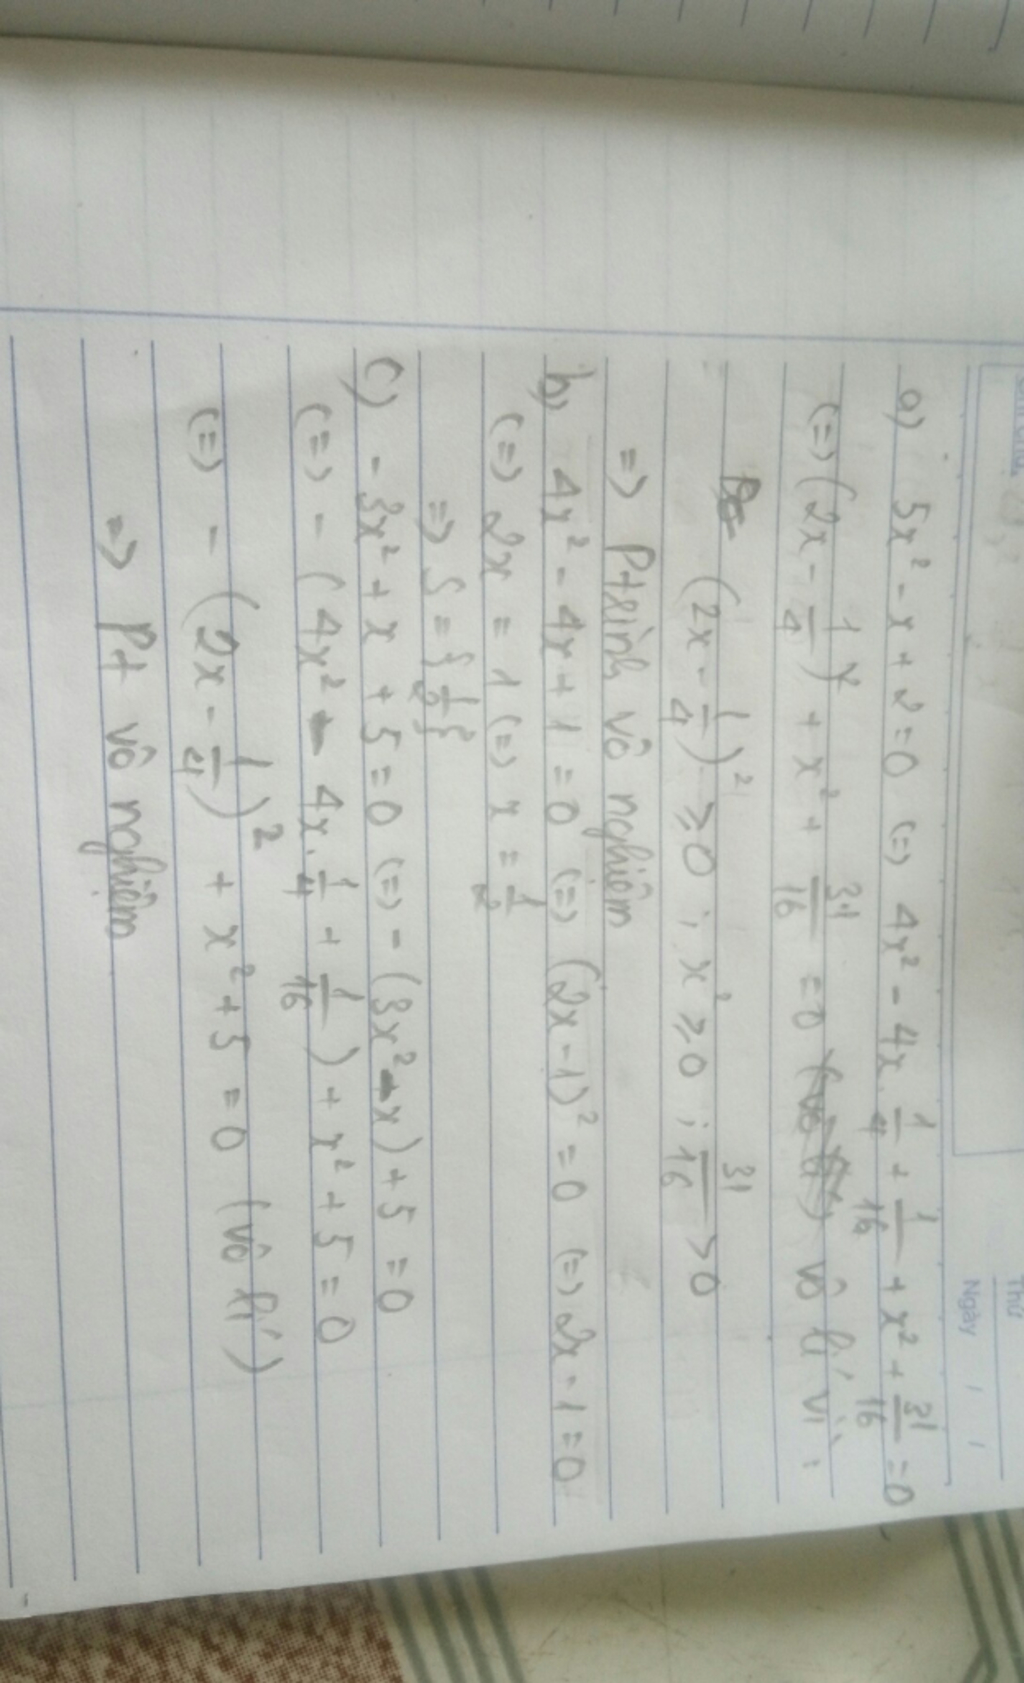 Thứ
Ngày / /
a) 5x² - x + 2 = 0 (=) 4x² - 4x.1/4 + 1/16 + x² + 31/16 = 0
(=) (2x - 1/4)² + x² + 31/16 = 0 vô lí vì :
(2x - 1/4)² ≥ 0 ; x² ≥ 0 ; 31/16 > 0
=> Pt trình vô nghiệm
b) 4x² - 4x + 1 = 0 (=) (2x - 1)² = 0 (=) 2x - 1 = 0
(=) 2x = 1 (=) x = 1/2
=> S = {1/2}
c) - 3x² + x + 5 = 0 (=) - (3x² - x) + 5 = 0
(=) - (4x² - 4x.1/4 + 1/16) + x² + 5 = 0
(=) - (2x - 1/4)² + x² + 5 = 0 (vô lí)
=> Pt vô nghiệm